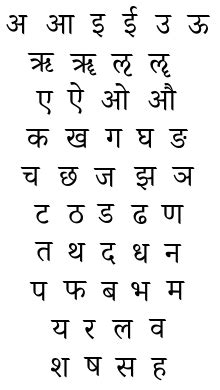 अ आ इ ई उ ऊ
ऋ ॠ ऌ ॡ
ए ऐ ओ औ
क ख ग घ ङ
च छ ज झ ञ
ट ठ ड ढ ण
त थ द ध न
प फ ब भ म
य र ल व
श ष स ह